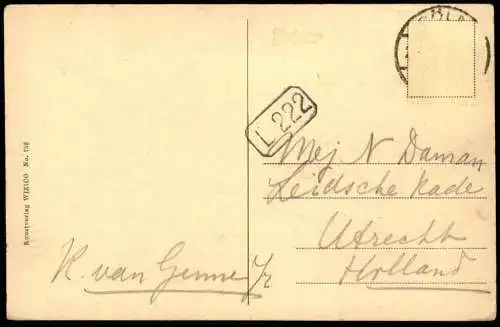 Kunstverlag WIKICO No. 752
L 222
Mej N Daman
Leidsche Kade
Utrecht
Holland
K. van Gennep Jr